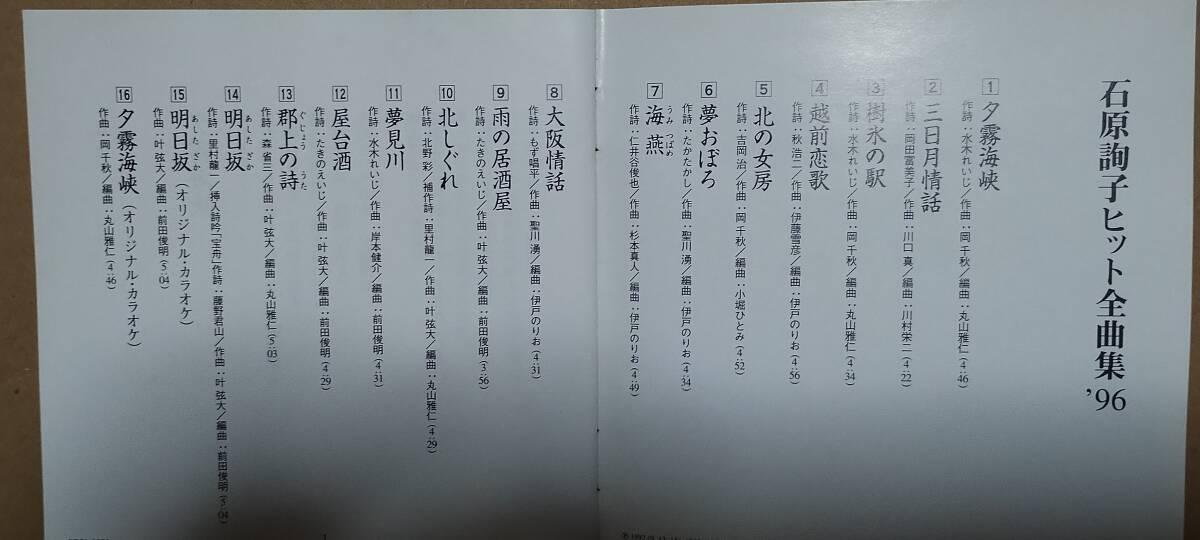 石原詢子ヒット全曲集 ’96
1 夕霧海峡
作詩：水木れいじ／作曲：岡 千秋／編曲：丸山雅仁（4：46）
2 三日月情話
作詩：岡田冨美子／作曲：川口 真／編曲：川村栄二（4：22）
3 樹氷の駅
作詩：水木れいじ／作曲：岡 千秋／編曲：丸山雅仁（4：34）
4 越前恋歌
作詩：秋 浩二／作曲：伊藤雪彦／編曲：伊戸のりお（4：56）
5 北の女房
作詩：吉岡 治／作曲：岡 千秋／編曲：小堀ひとみ（4：52）
6 夢おぼろ
作詩：たかたかし／作曲：聖川 湧／編曲：伊戸のりお（4：34）
7 海燕
うみつばめ
作詩：仁井谷俊也／作曲：杉本真人／編曲：伊戸のりお（4：49）
8 大阪情話
作詩：もず唱平／作曲：聖川 湧／編曲：伊戸のりお（4：31）
9 雨の居酒屋
作詩：たきのえいじ／作曲：叶 弦大／編曲：前田俊明（3：56）
10 北しぐれ
作詩：北野 彩／補作詩：里村龍一／作曲：叶 弦大／編曲：丸山雅仁（4：29）
11 夢見川
作詩：水木れいじ／作曲：岸本健介／編曲：前田俊明（4：31）
12 屋台酒
作詩：たきのえいじ／作曲：叶 弦大／編曲：前田俊明（4：29）
13 郡上の詩
ぐじょう うた
作詩：森 省三／作曲：叶 弦大／編曲：丸山雅仁（5：03）
14 明日坂
あしたざか
作詩：里村龍一／挿入詩吟「宝舟」作詩：藤野君山／作曲：叶 弦大／編曲：前田俊明（5：04）
15 明日坂（オリジナル・カラオケ）
あしたざか
作曲：叶 弦大／編曲：前田俊明（5：04）
16 夕霧海峡（オリジナル・カラオケ）
作曲：岡 千秋／編曲：丸山雅仁（4：46）